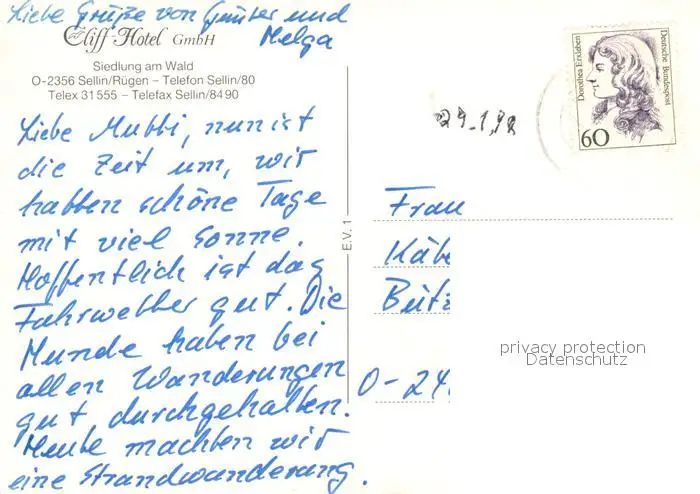 Liebe Grüße von Günter und
Helga
Cliff Hotel GmbH
Siedlung am Wald
O-2356 Sellin/Rügen – Telefon Sellin/80
Telex 31 555 – Telefax Sellin/84 90
Liebe Mutti, nun ist
die Zeit um, wir
hatten schöne Tage
mit viel Sonne.
Hoffentlich ist das
Fahrwetter gut. Die
Hunde haben bei
allen Wanderungen
gut durchgehalten.
Heute machten wir
eine Strandwanderung.
E.V. 1
29.1.92
Dorothea Erxleben
Deutsche Bundespost
60
Frau
Käte
Bütz
O-24
privacy protection
Datenschutz